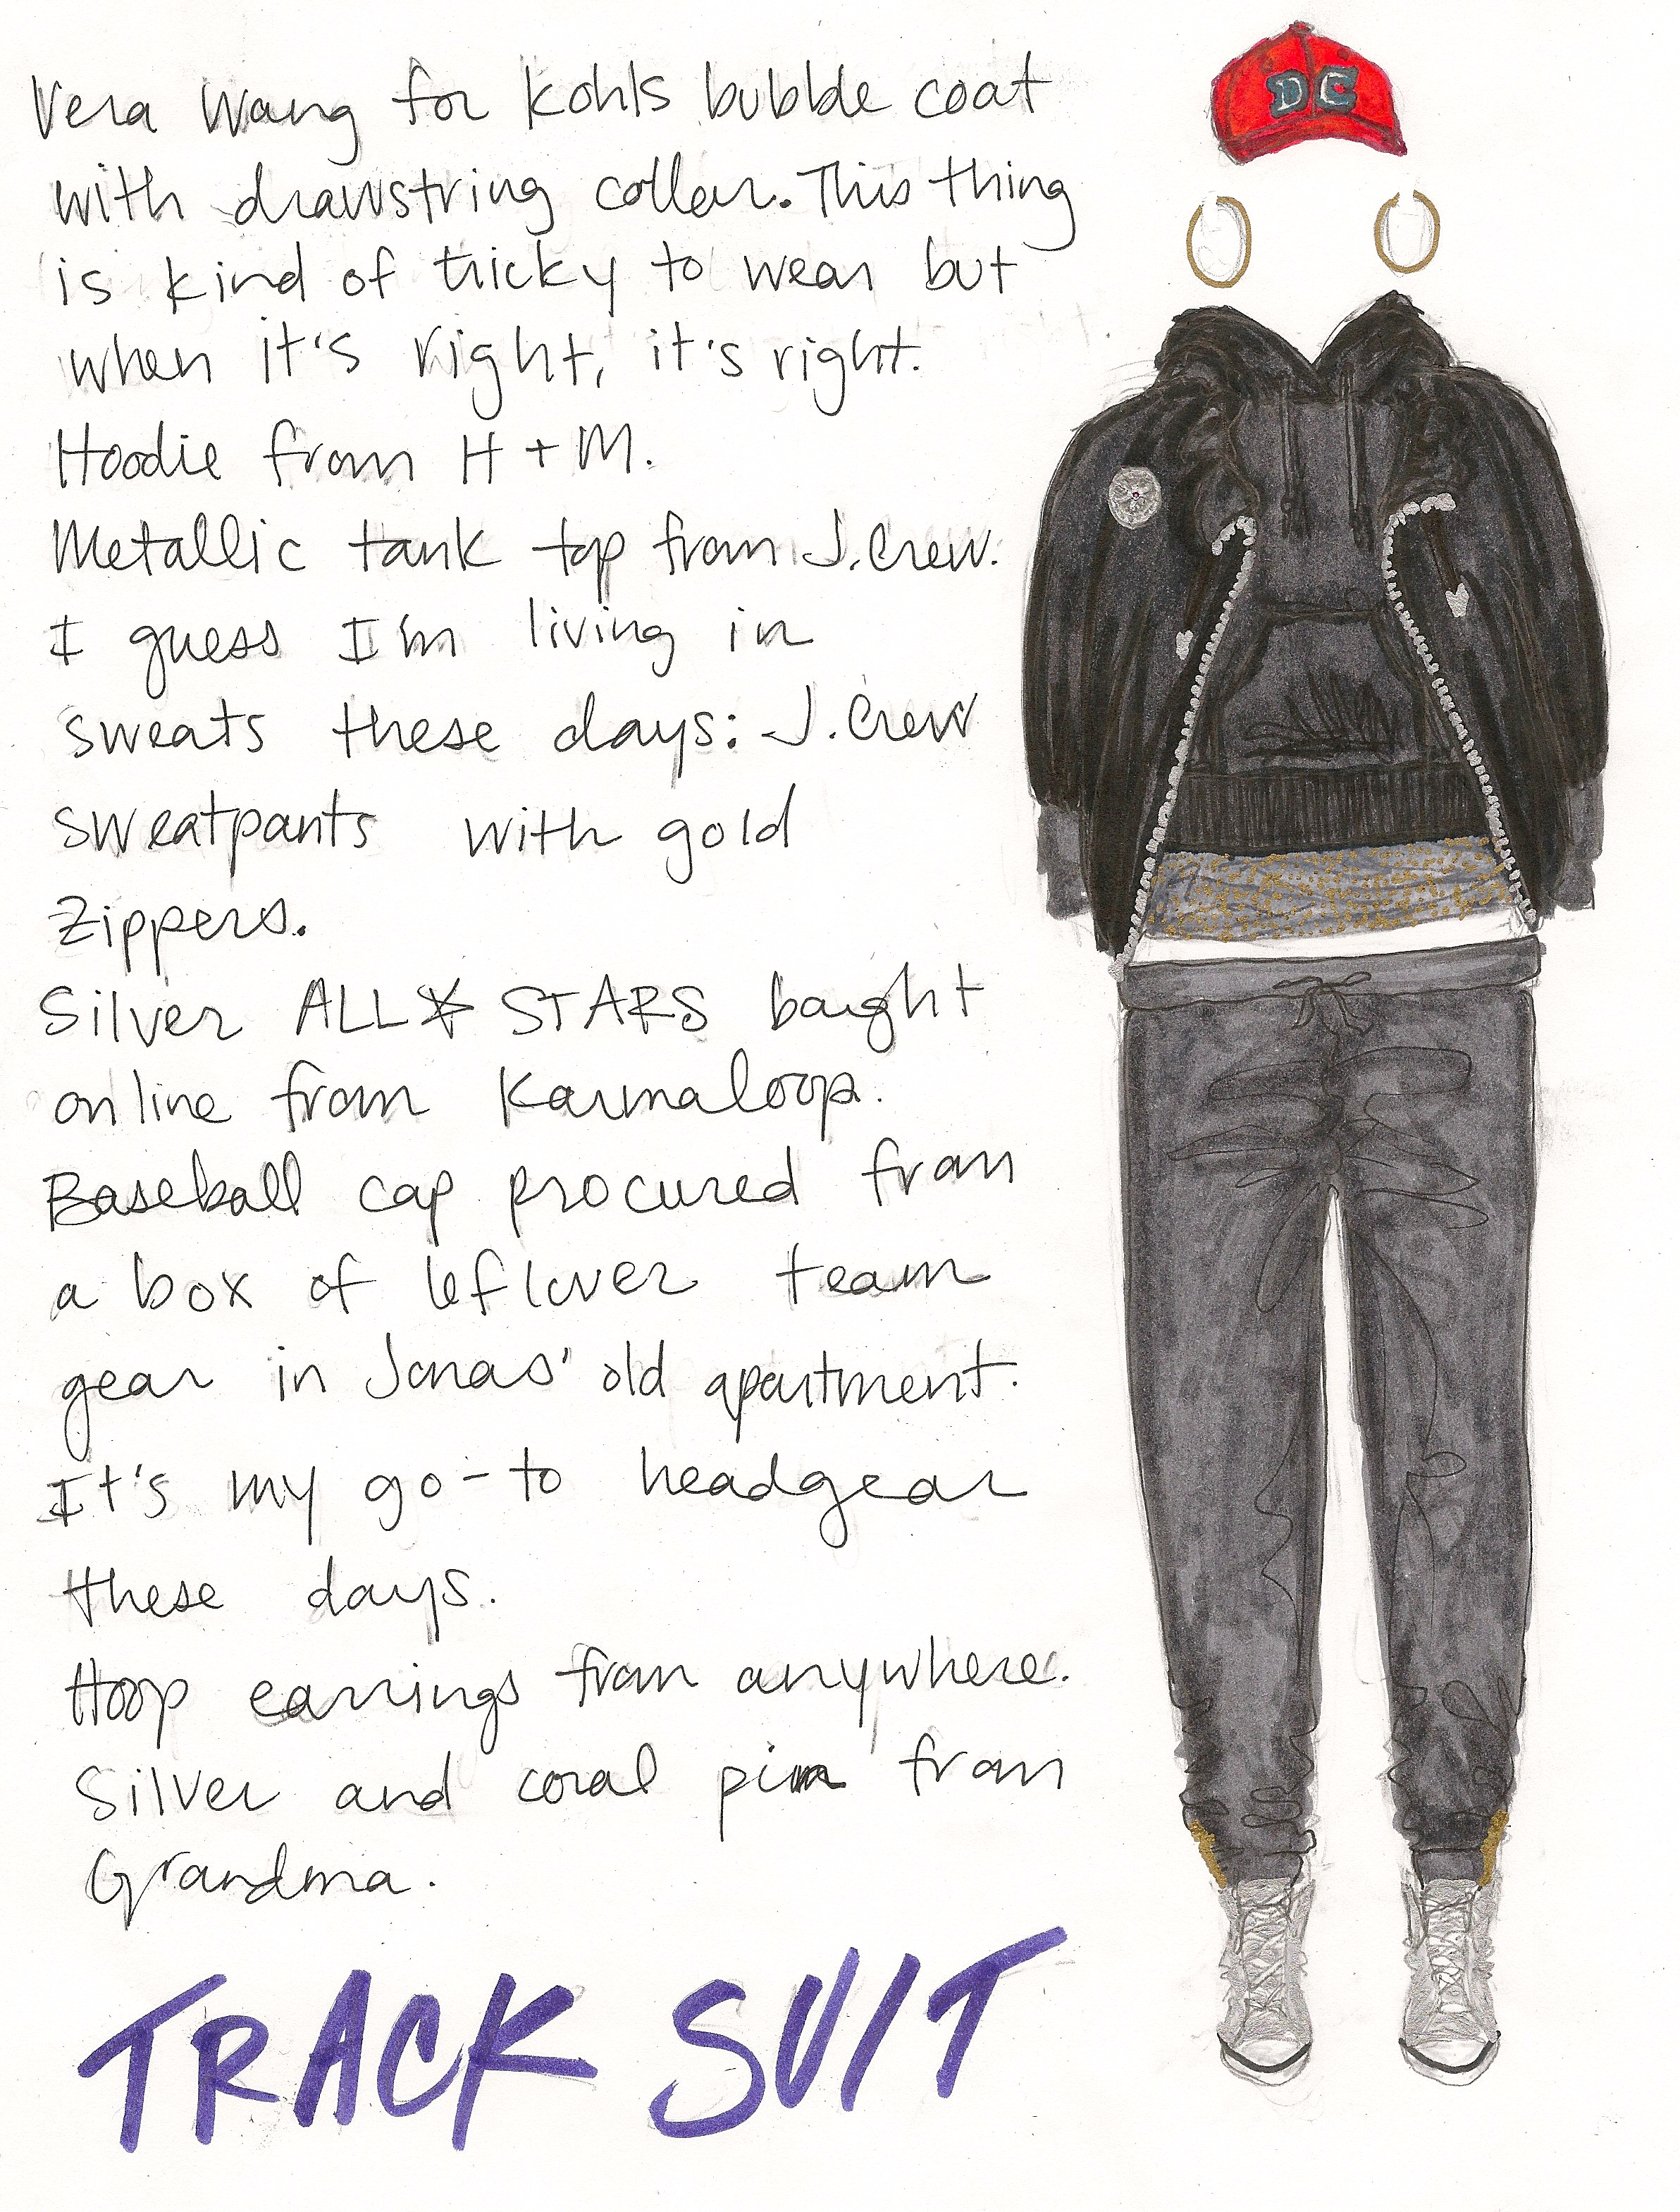 DC
Vera Wang for Kohls bubble coat
with drawstring collar. This thing
is kind of tricky to wear but
when it's right, it's right.
Hoodie from H + M.
Metallic tank top from J.Crew.
I guess I'm living in
sweats these days: J.Crew
sweatpants with gold
zippers.
Silver ALL★STARS bought
online from Karmaloop.
Baseball cap procured from
a box of leftover team
gear in Jonas' old apartment.
It's my go-to headgear
these days.
Hoop earrings from anywhere.
Silver and coral pin from
Grandma.
TRACK SUIT